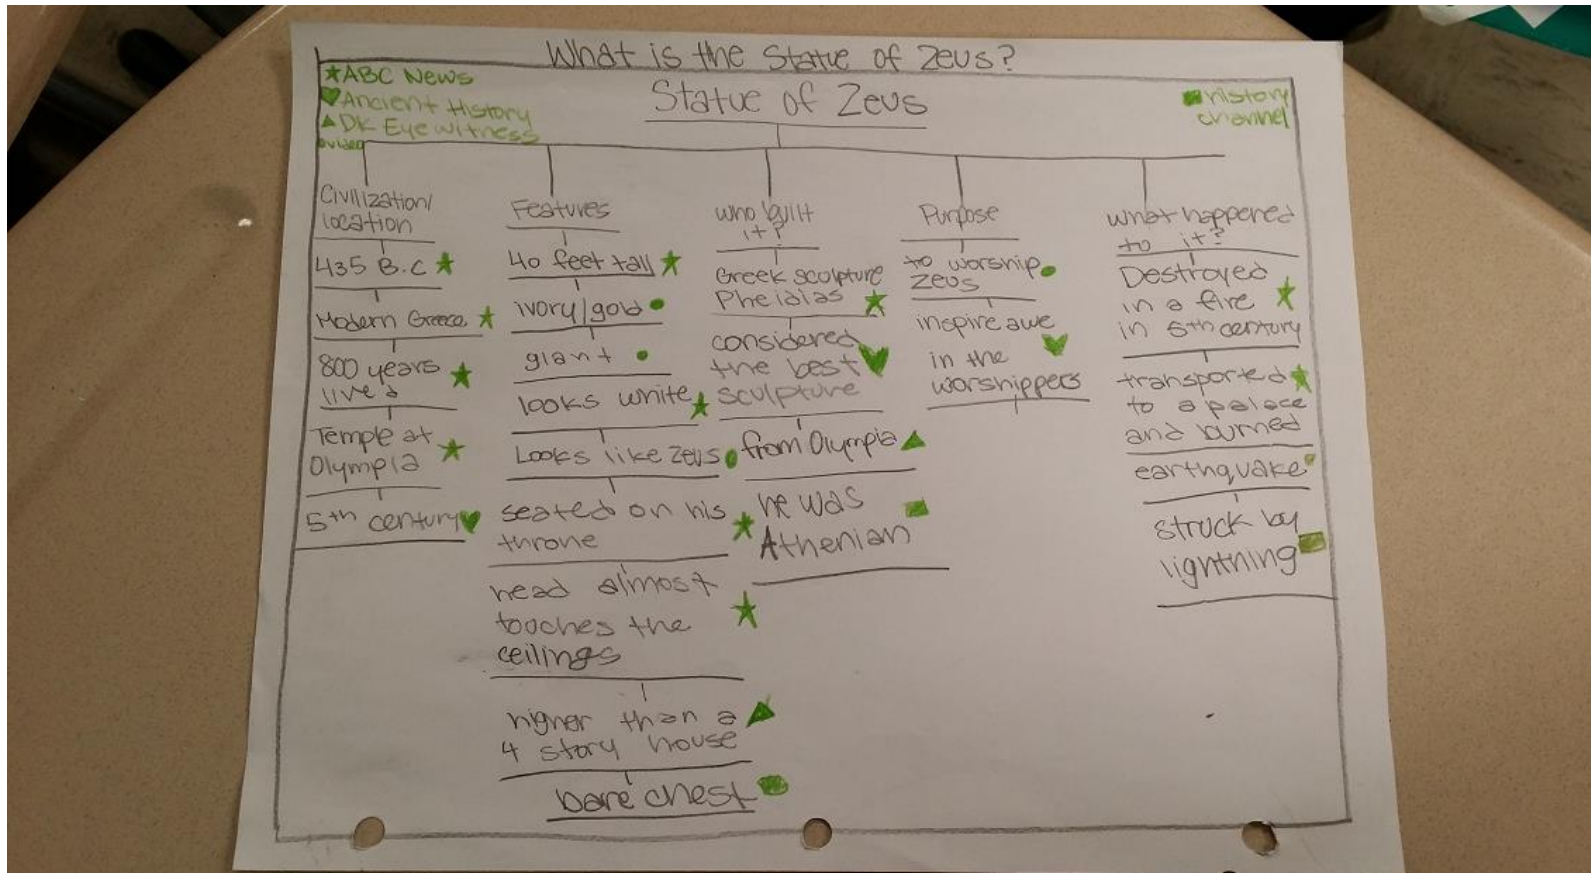 What is the Statue of Zeus?
ABC News
Ancient History
DK Eyewitness
video
Statue of Zeus
History
channel
Civilization/
location
435 B.C
Modern Greece
800 years
lived
Temple at
Olympia
5th century
Features
40 feet tall
ivory/gold
giant
looks white
Looks like Zeus
seated on his
throne
head almost
touches the
ceilings
higher than a
4 story house
bare chest
who built
it?
Greek sculpture
Pheidias
considered
the best
sculpture
from Olympia
he was
Athenian
Purpose
to worship
Zeus
inspire awe
in the
worshippers
what happened
to it?
Destroyed
in a fire
in 5th century
transported
to a palace
and burned
earthquake
struck by
lightning